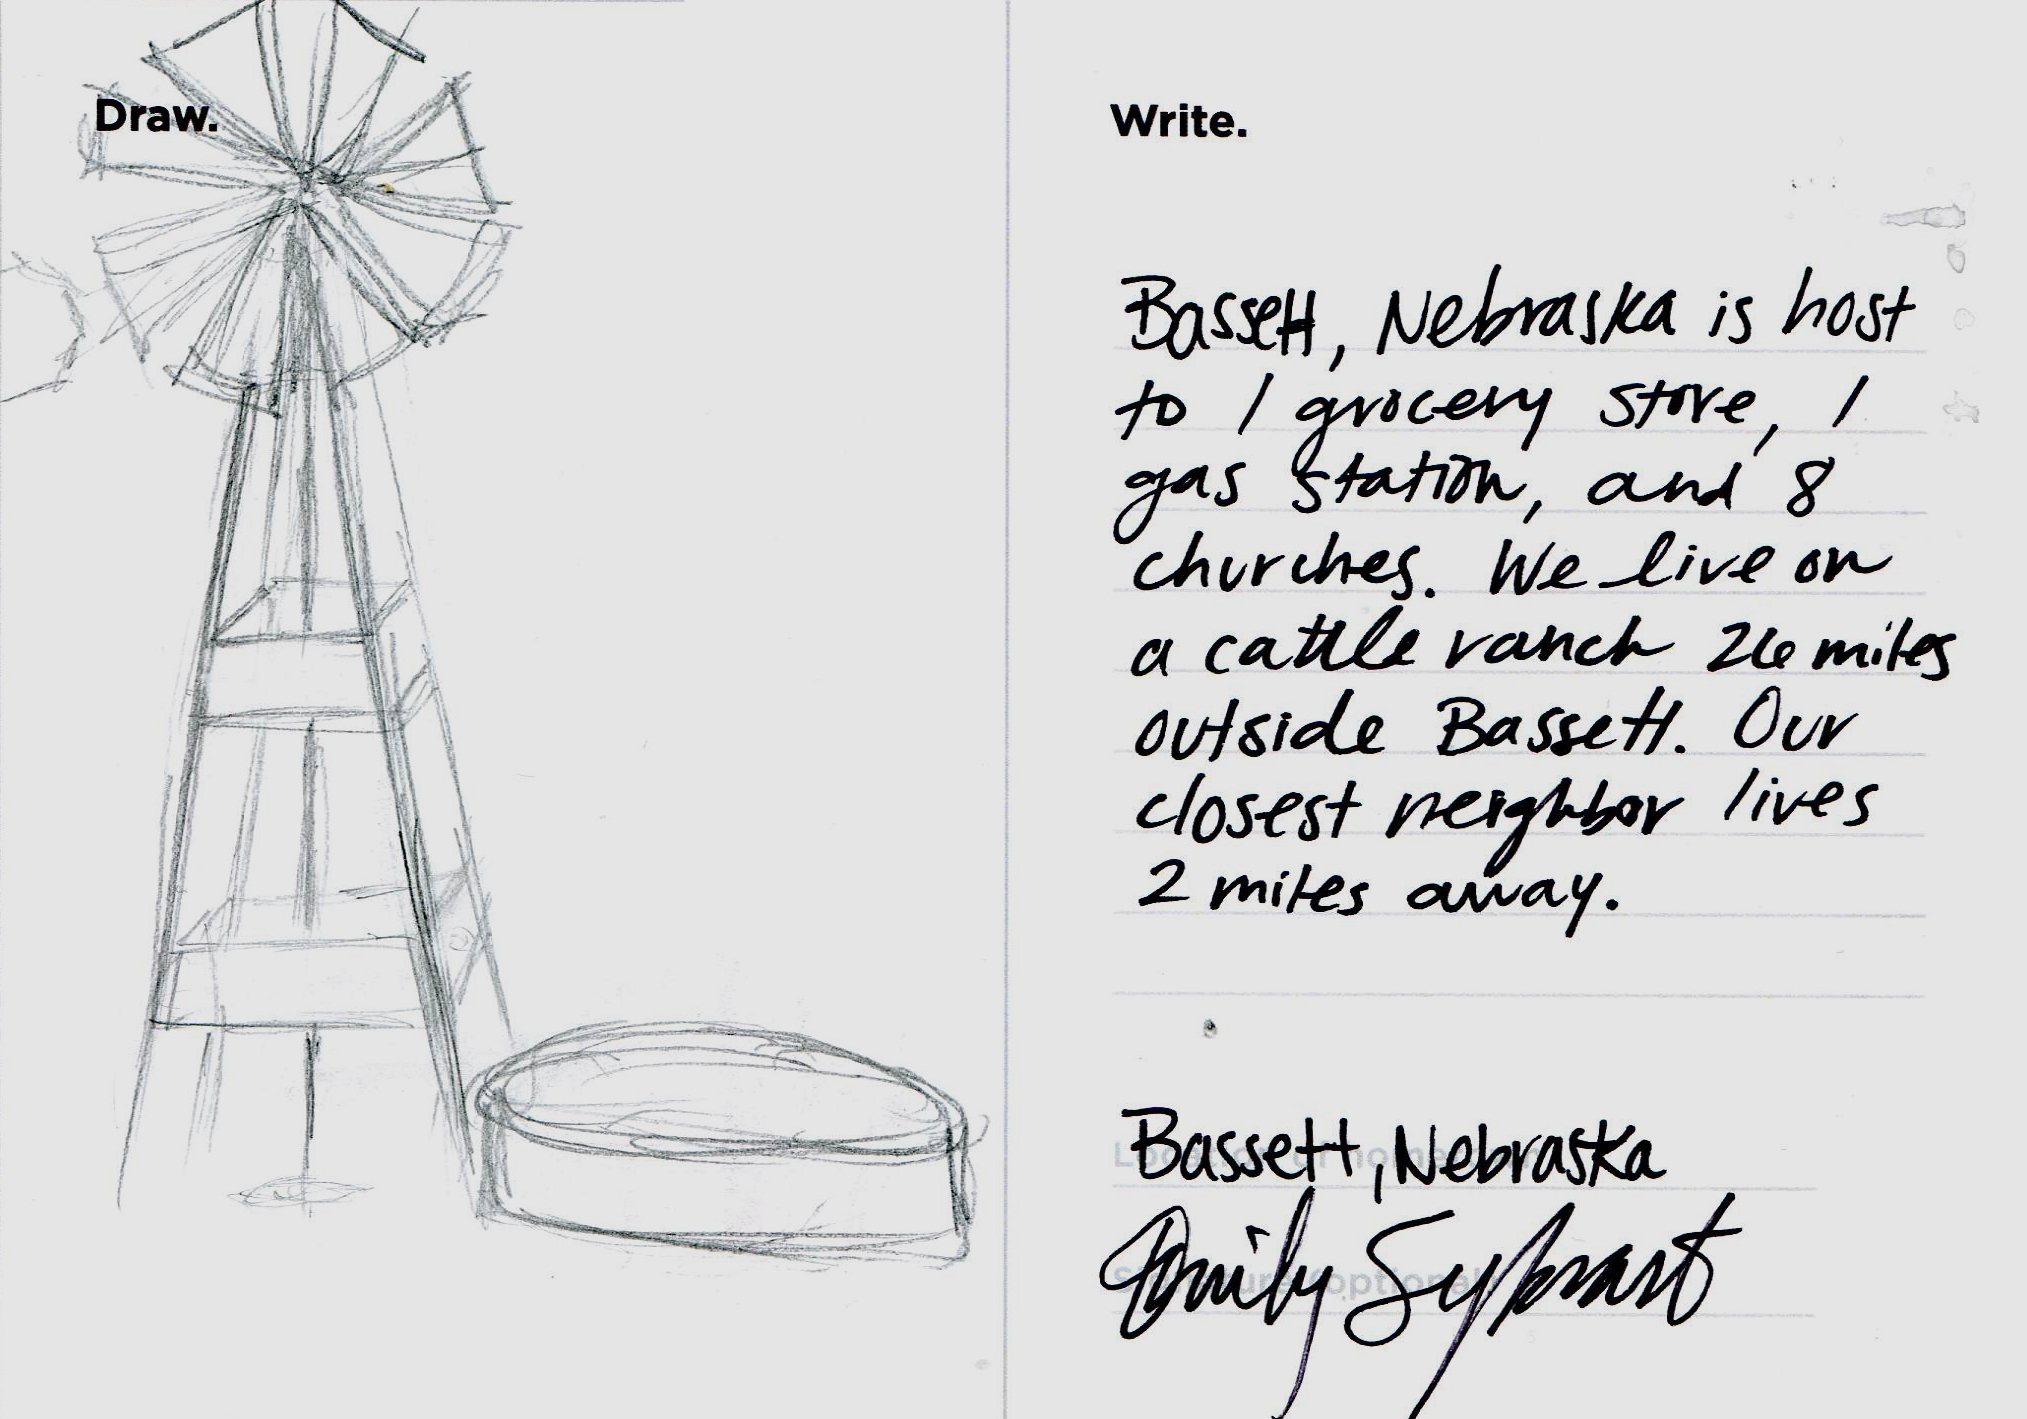 Draw.
Write.
Bassett, Nebraska is host
to 1 grocery store, 1
gas station, and 8
churches. We live on
a cattle ranch 26 miles
outside Bassett. Our
closest neighbor lives
2 miles away.
Bassett, Nebraska
Location of hometown
Emily Sybrant
Signature (optional)